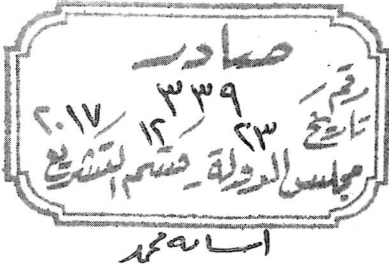 صادر
رقم ٣٣٩
تاريخ ٢٣ / ١٢ / ٢٠١٧
مجلس الدولة - قسم التشريع
أسامه محمد